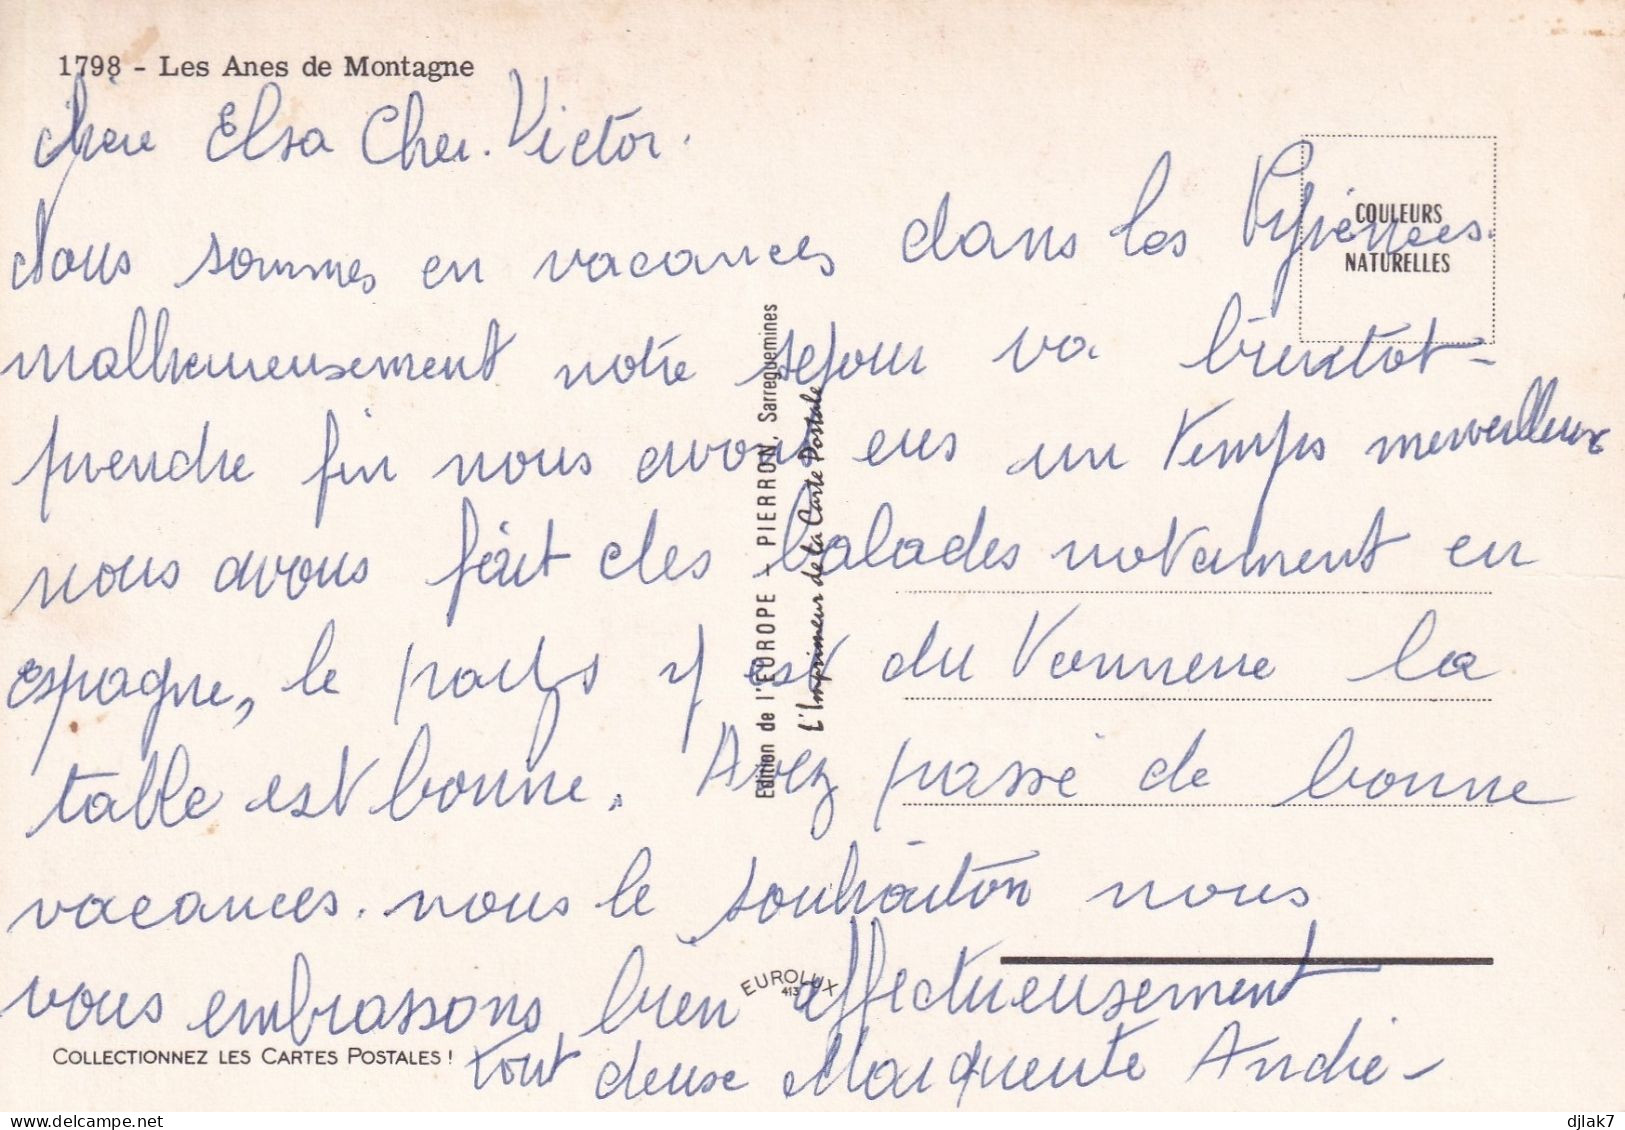 1798 - Les Anes de Montagne
chère Elsa Cher. Victor.
Nous sommes en vacances dans les Pyrénées.
COULEURS
NATURELLES
malheureusement notre sejour va bientot-
prendre fin nous avons eus un temps merveilleux
nous avons fait des balades notament en
espagne, le pays y est du Tonnerre la
table est bonne. Avez passé de bonne
vacances. nous le souhaiton nous
vous embrassons bien affectueusement
tout deux Marguerite André -
Edition de l'EUROPE - PIERRON, Sarreguemines
L'Imprimeur de la Carte Postale
EUROLUX
413
COLLECTIONNEZ LES CARTES POSTALES !
delcampe.net
djlak7